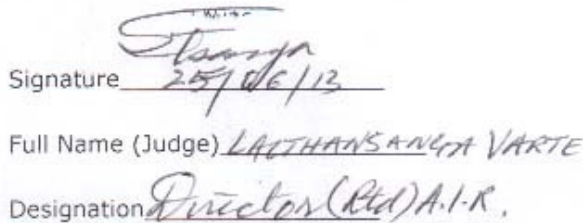 Signature 25/06/13
Full Name (Judge) LALTHANSANGA VARTE
Designation Director (Rtd) A.I.R.